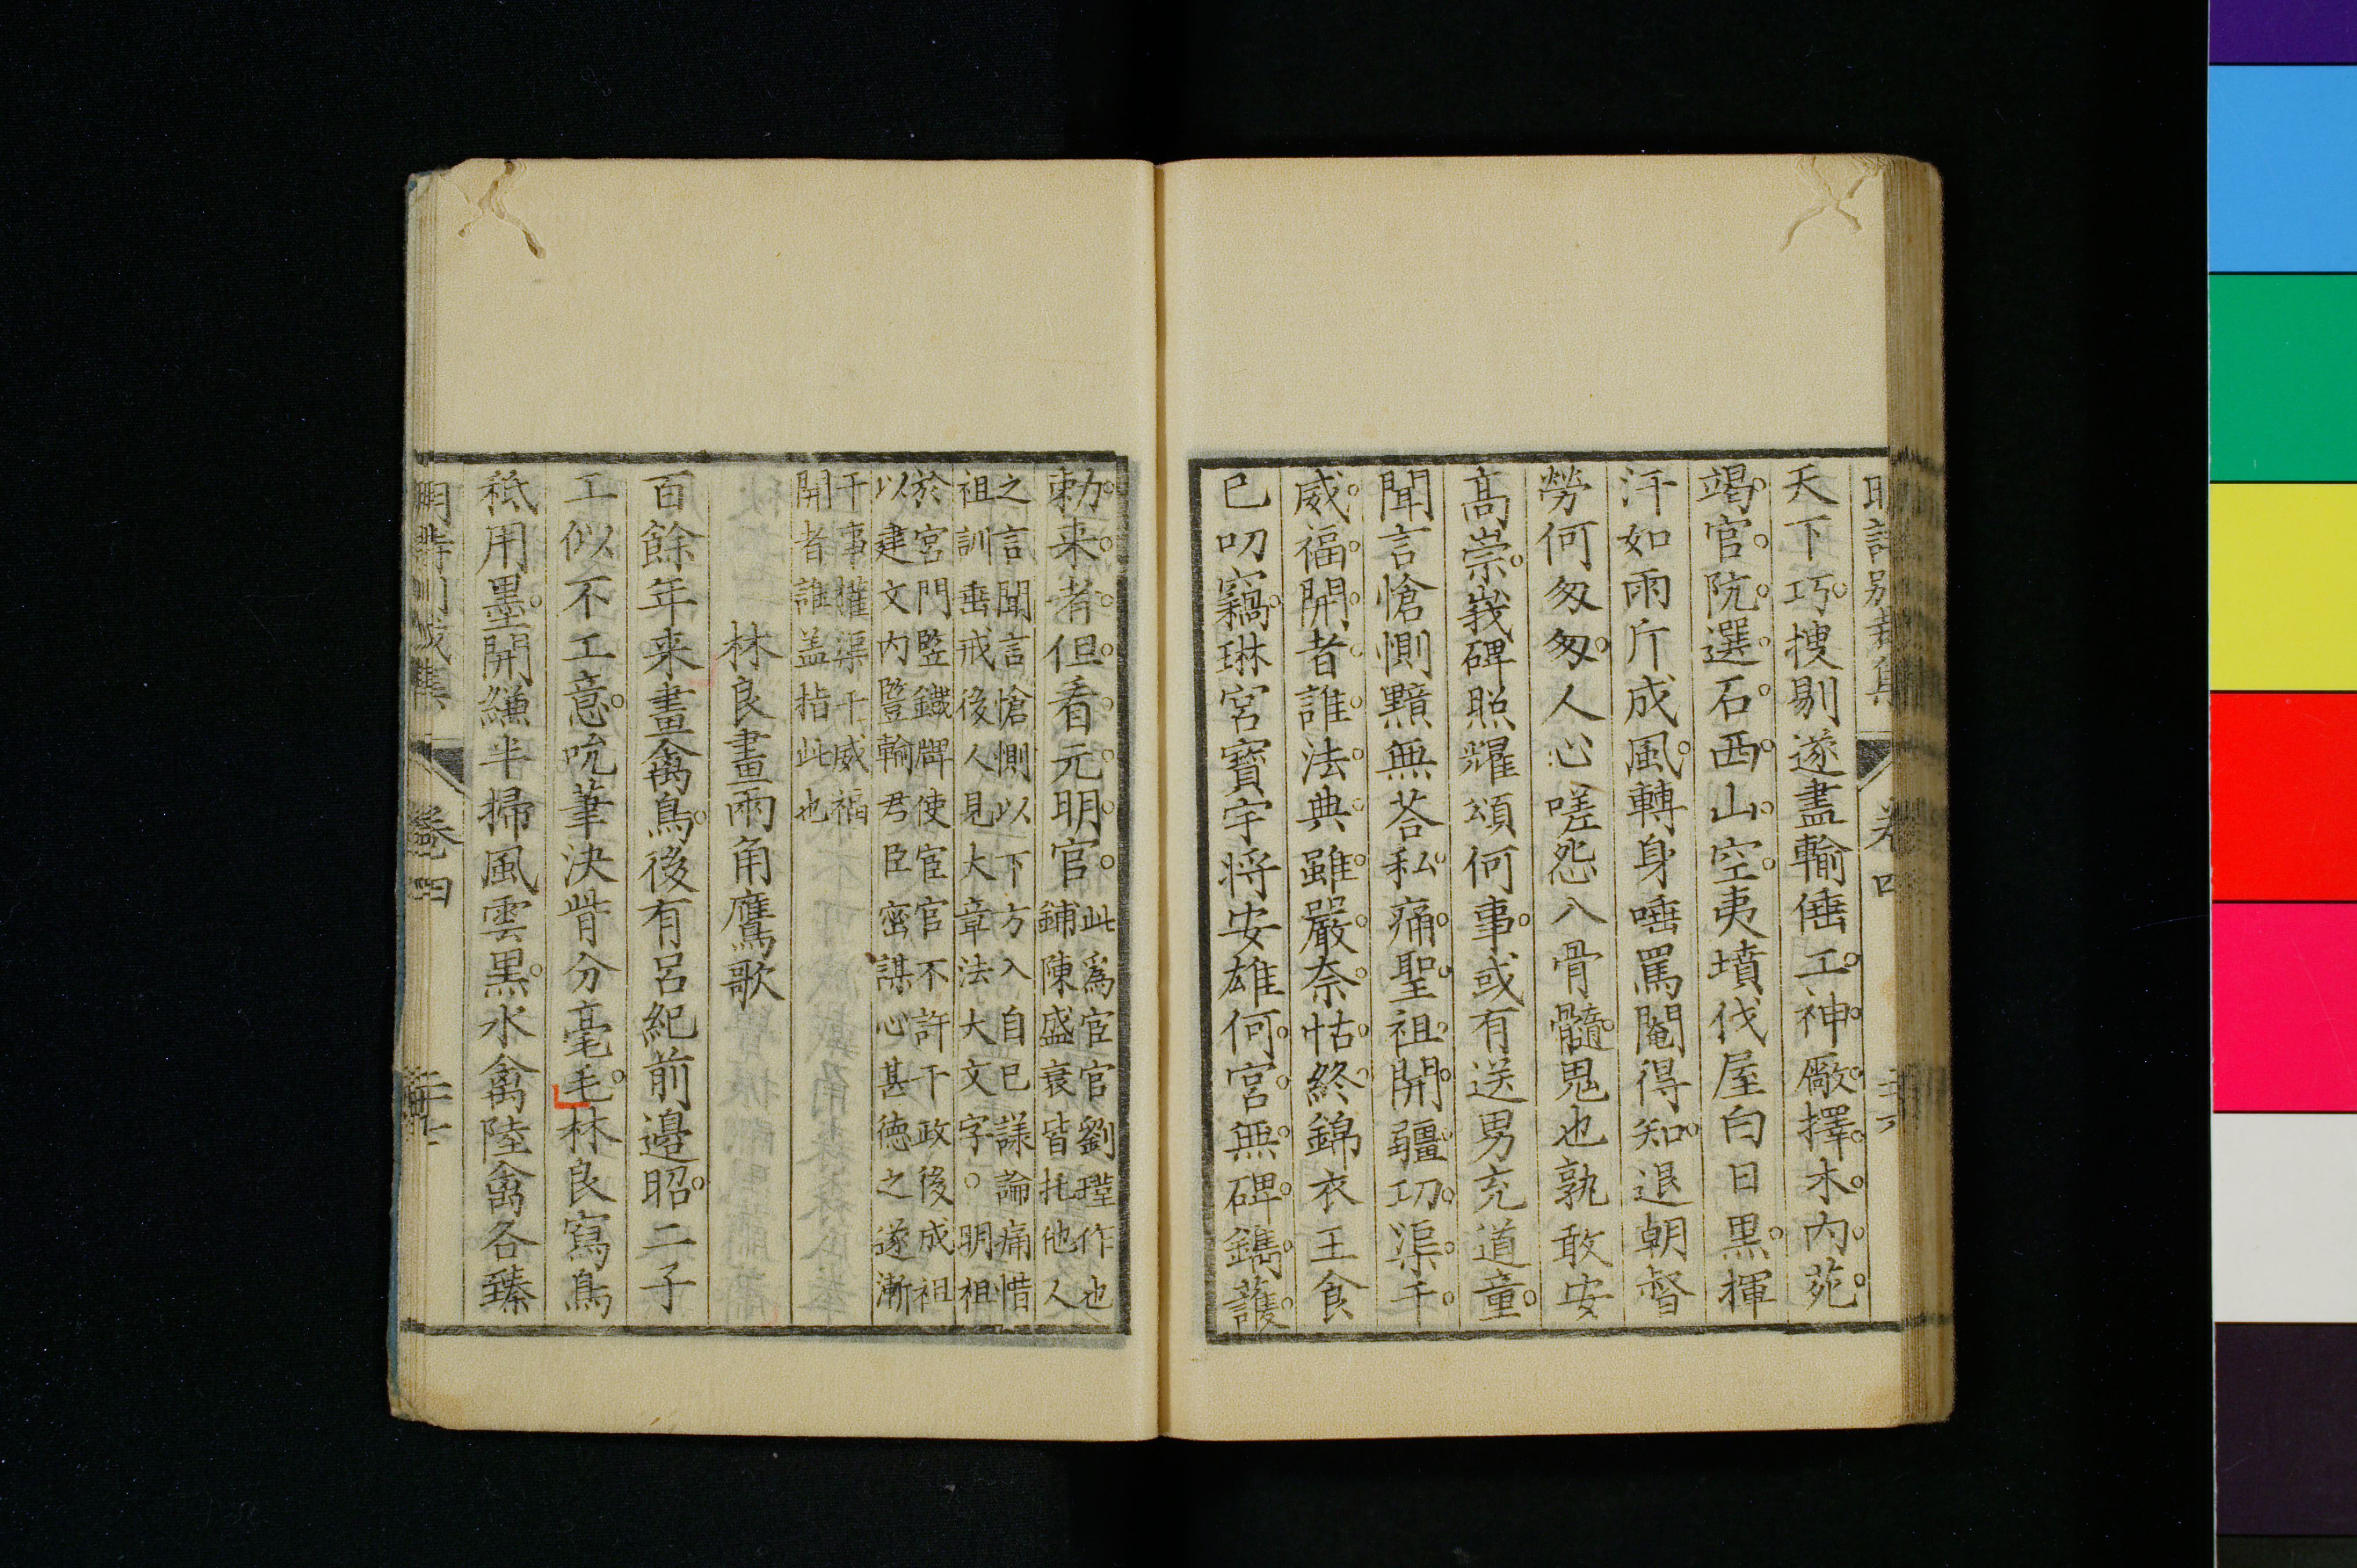 天下巧。搜剔遂盡輸倕工。神。廠。擇。木。內。苑。
竭。官。阬。選。石。西。山。空。夷墳伐屋白日黑。揮
汗如雨斤成風。轉身唾罵閹得知。退朝督
勞何匆匆。人心嗟怨入骨髓。鬼也孰敢安
高崇。峩碑照耀頌何事。或有送男充道童。
聞言愴惻黯無荅。私。痛。聖。祖。開。疆。功。渠。千。
威。福。開。者。誰。法。典。雖。嚴。奈。怙。終。錦衣玉食
已叨竊。琳宮寶宇將安雄。何。宮。無。碑。鐫。護。
勅。来。者。但。看。元。明。官。
此爲宦官劉瑾作也
鋪陳盛衰皆托他人
之言聞言愴惻以下方入自己議論痛惜
祖訓垂戒後人見大章法大文字。明祖
於宮門豎鐵牌使宦官不許干政後成祖
以建文內豎輸君臣密謀心甚德之遂漸
干事權渠干威福
開者誰盖指此也
林良畫兩角鷹歌
百餘年来畫禽鳥。後有呂紀前邊昭。二子
工似不工意。吮筆決眥分毫毛。林良寫鳥
祗用墨。開縑半掃風雲黑。水禽陸禽各臻
卷四